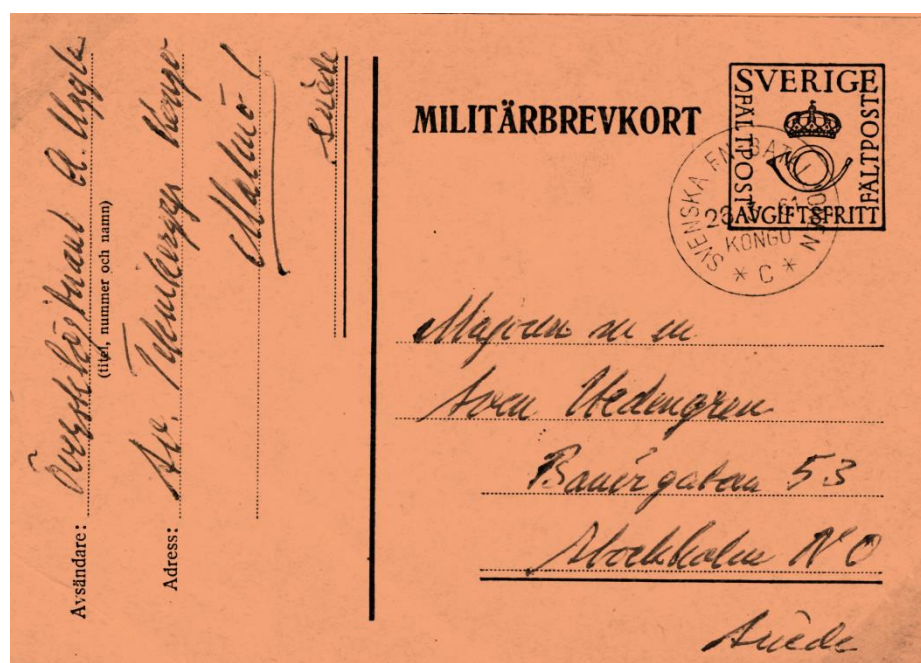 Avsändare: Överstelöjtnant A.
(titel, nummer och namn)
Adress: Av. Kongo
Malmö 1
Suède
MILITÄRBREVKORT
SVERIGE
FÄLTPOST
FÄLTPOSTE
AVGIFTSFRITT
SVENSKA FN BATALJONEN
KONGO
* C *
Majoren m m
Sven Hedengren
Banérgatan 53
Stockholm NO
Suède